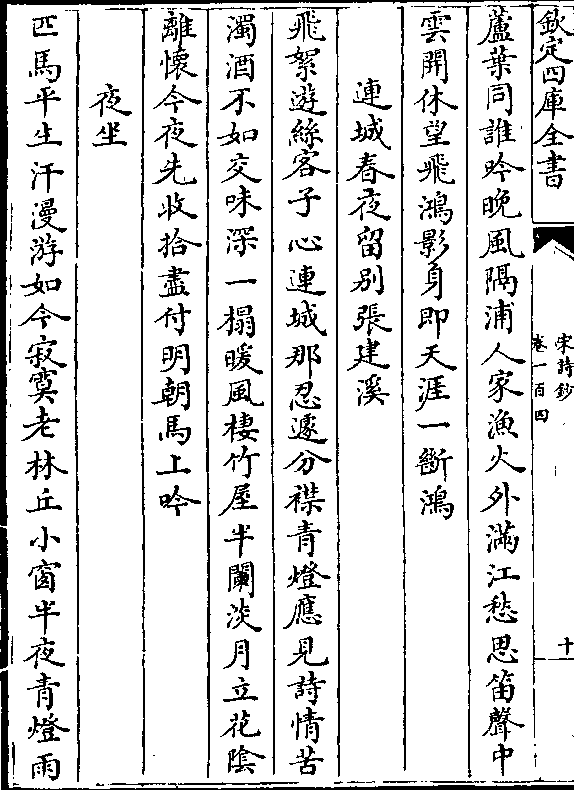 欽定四庫全書
宋詩鈔
卷一百四
十
蘆葉同誰吟晚風隔浦人家漁火外滿江愁思笛聲中
雲開休望飛鴻影身即天涯一斷鴻
連城春夜留别張建溪
飛絮遊絲客子心連城那忍遽分襟青燈應見詩情苦
濁酒不如交味深一榻暖風棲竹屋半闌淡月立花陰
離懷今夜先收拾盡付明朝馬上吟
夜坐
匹馬平生汗漫游如今寂寞老林丘小窗半夜青燈雨